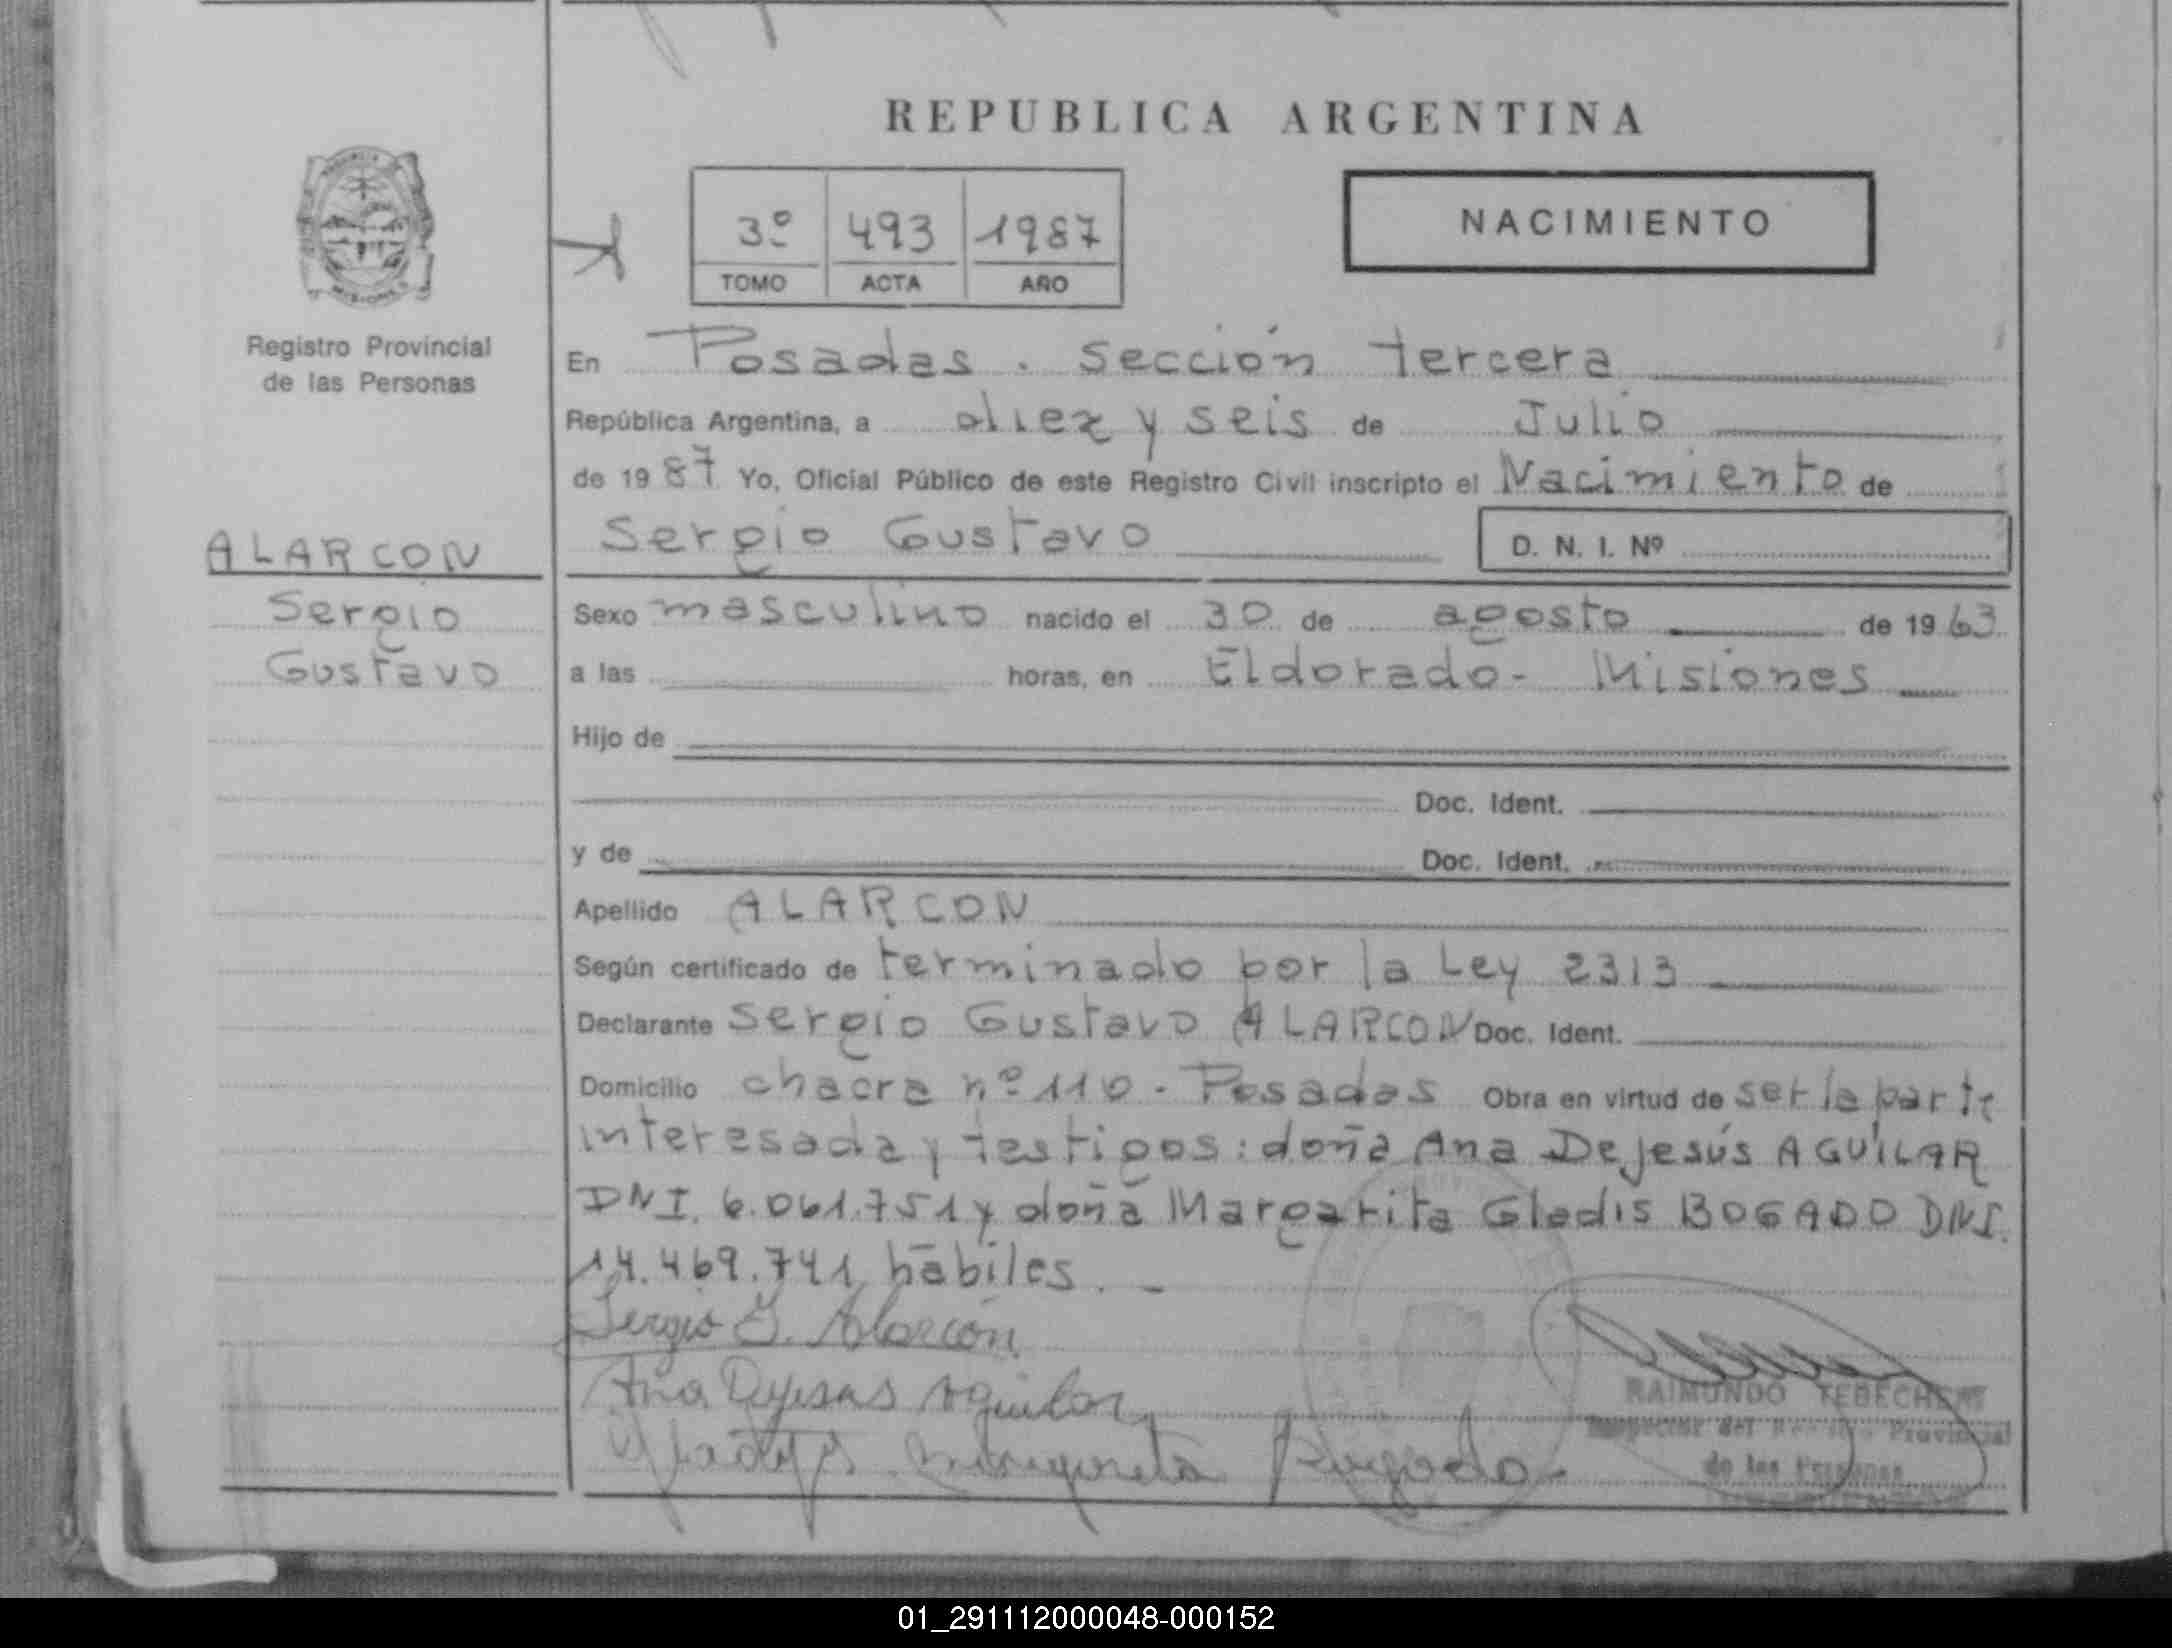 REPUBLICA ARGENTINA
3º 493 1987
TOMO ACTA AÑO
NACIMIENTO
Registro Provincial
de las Personas
ALARCON
Sergio
Gustavo
En Posadas. Sección tercera
República Argentina, a diez y seis de Julio
de 1987 Yo, Oficial Público de este Registro Civil inscripto el Nacimiento de
Sergio Gustavo D. N. I. Nº
Sexo masculino nacido el 30 de agosto de 1963
a las horas, en Eldorado - Misiones
Hijo de
Doc. Ident.
y de Doc. Ident.
Apellido ALARCON
Según certificado de terminado por la Ley 2313
Declarante Sergio Gustavo ALARCON Doc. Ident.
Domicilio chacra nº 110 - Posadas Obra en virtud de ser la parte
interesada y testigos: doña Ana De Jesús AGUILAR
DNI. 6.061.751 y doña Margarita Gladis BOGADO DNI.
14.469.741, hábiles. -
Sergio G. Alarcón
Ana Dejesas Aguilar
Gladys Margarita Bogado
RAIMUNDO
Inspector del Registro Provincial
de las Personas
01_291112000048-000152